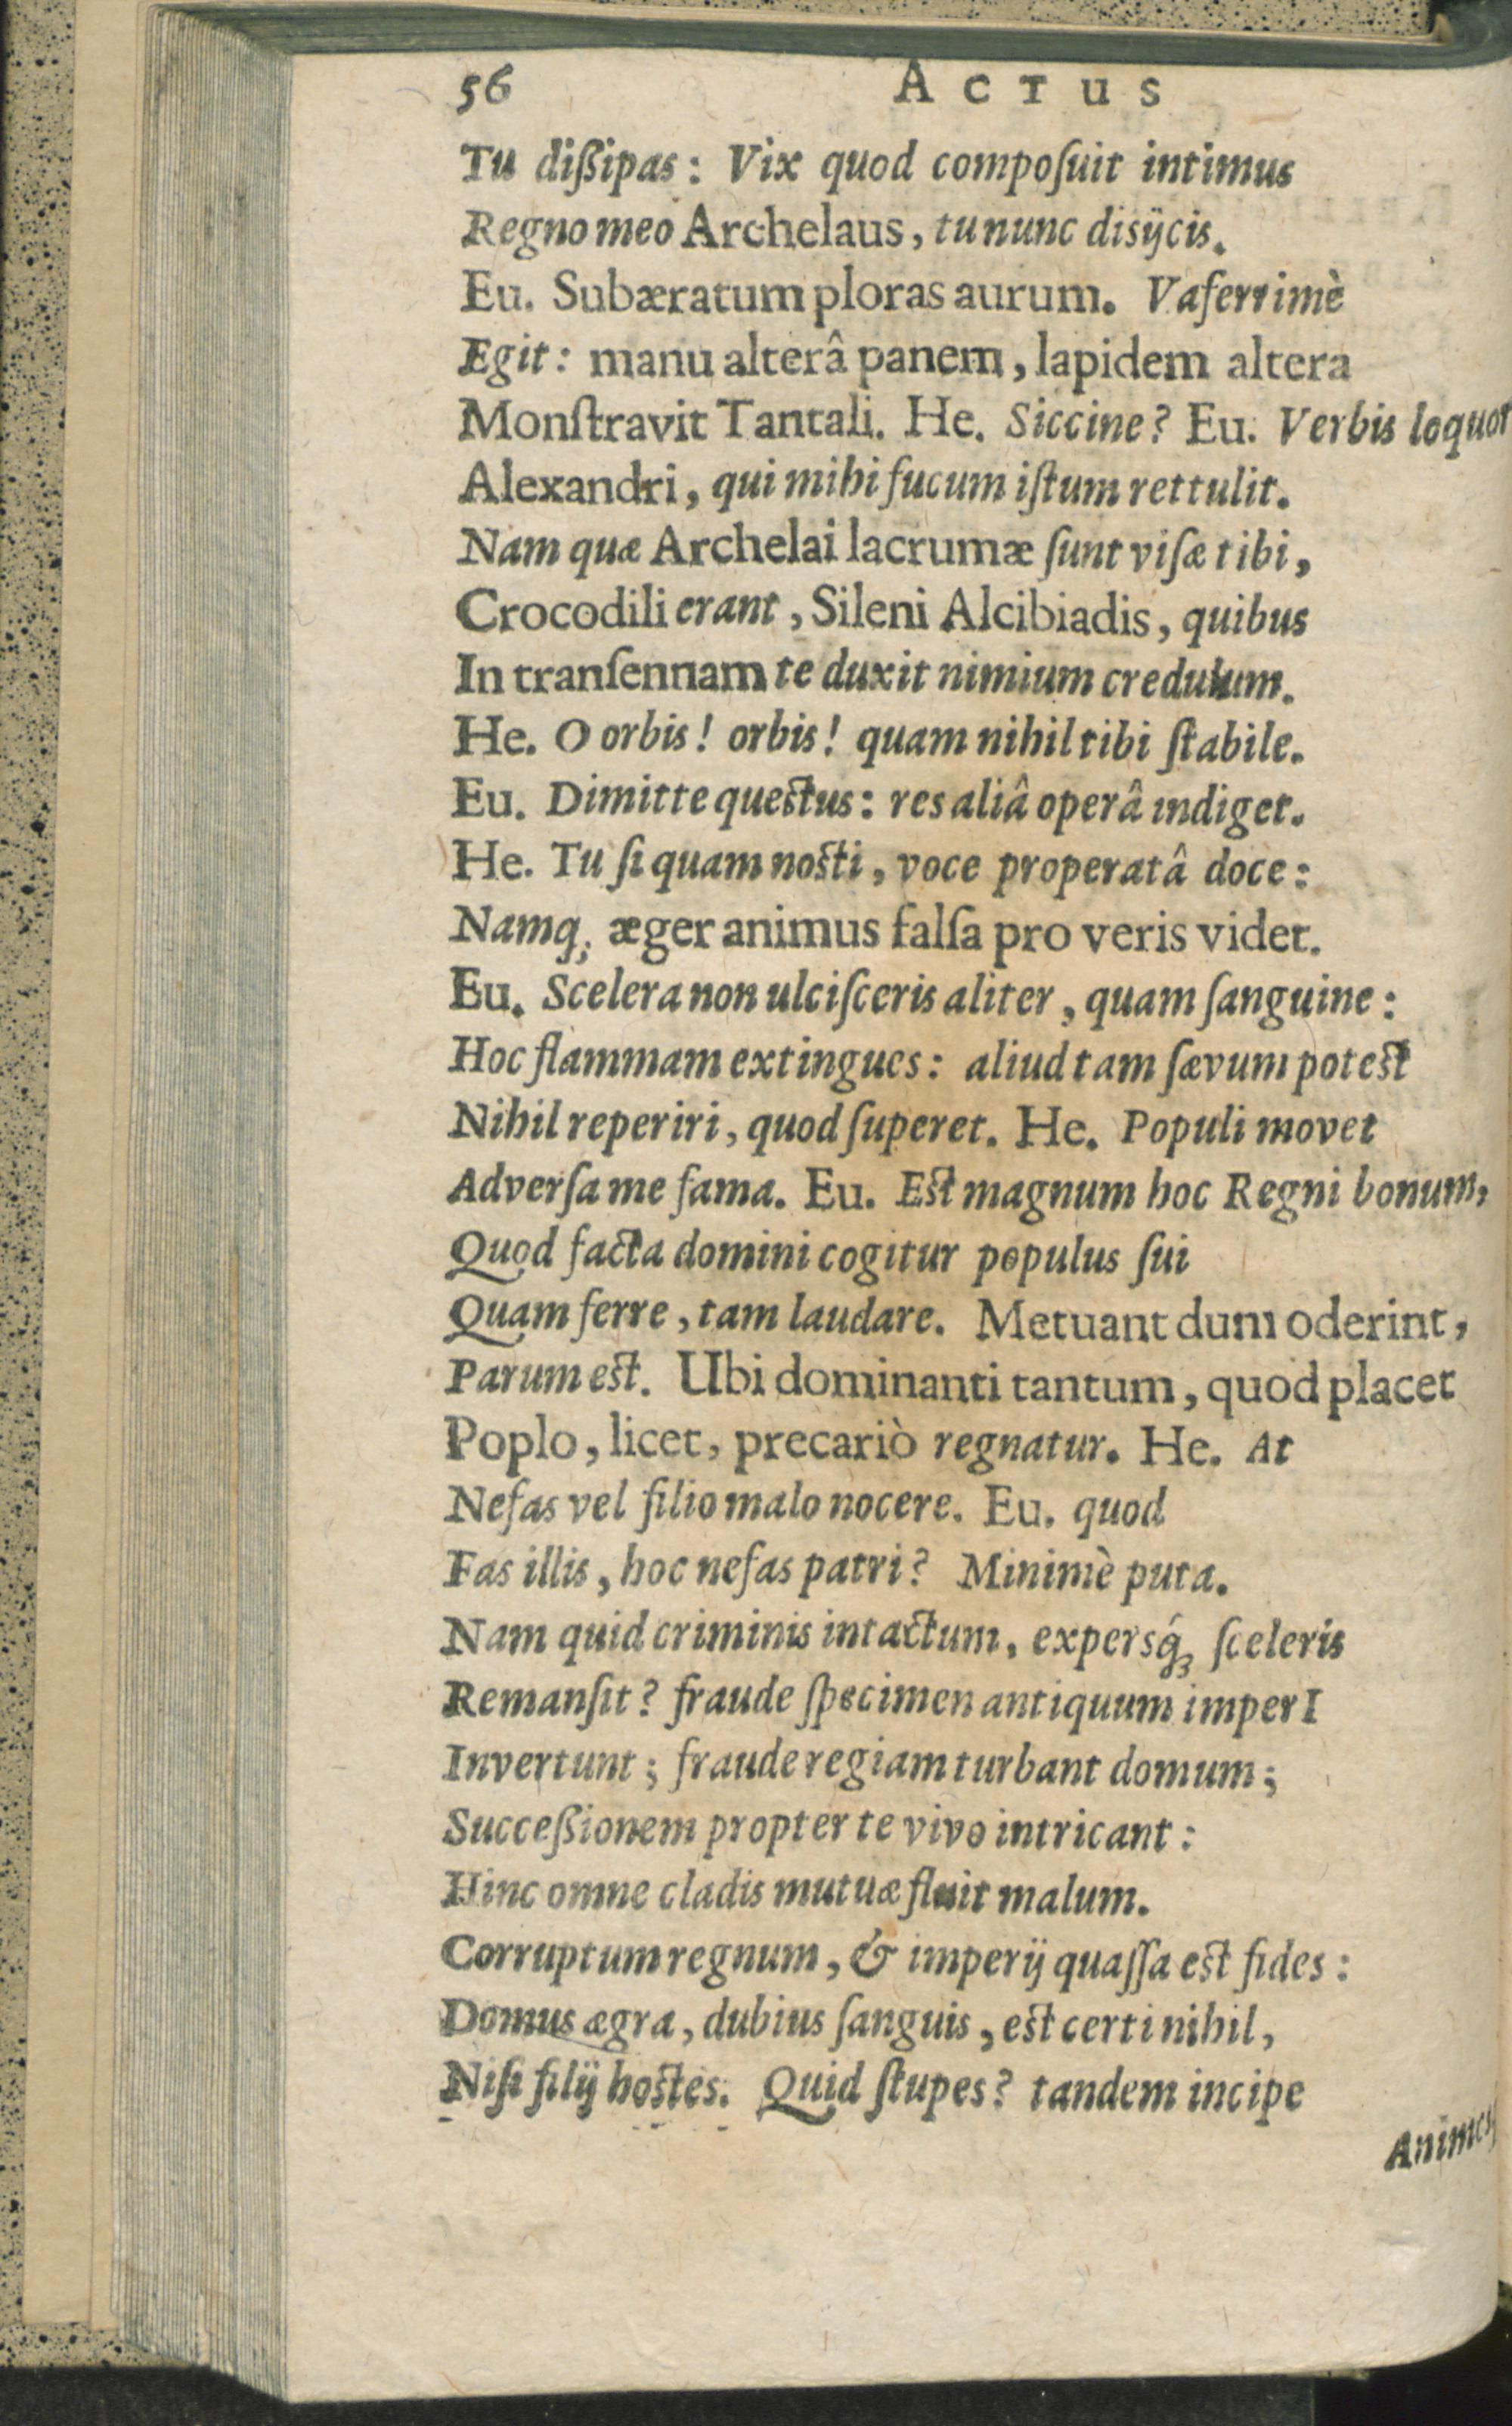 56 ACTUS
Tu dißipas: Vix quod compoſuit intimus
Regno meo Archelaus, tu nunc disijcis.
Eu. Subæratum ploras aurum. Vaferrimè
Egit: manu alterâ panem, lapidem altera
Monſtravit Tantali. He. Siccine? Eu. Verbis loquor
Alexandri, qui mihi fucum iſtum rettulit.
Nam quæ Archelai lacrumæ ſunt viſæ tibi,
Crocodili erant, Sileni Alcibiadis, quibus
In tranſennam te duxit nimium credulum.
He. O orbis! orbis! quam nihil tibi ſtabile.
Eu. Dimitte questus: res aliâ operâ indiget.
He. Tu ſi quam nosti, voce properatâ doce:
Namq; æger animus falſa pro veris videt.
Eu. Scelera non ulciſceris aliter, quam ſanguine:
Hoc flammam extingues: aliud tam ſævum potest
Nihil reperiri, quod ſuperet. He. Populi movet
Adverſa me fama. Eu. Est magnum hoc Regni bonum,
Quod facta domini cogitur populus ſui
Quam ferre, tam laudare. Metuant dum oderint,
Parum est. Ubi dominanti tantum, quod placet
Poplo, licet, precariò regnatur. He. At
Nefas vel filio malo nocere. Eu. quod
Fas illis, hoc nefas patri? Minimè puta.
Nam quid criminis intactum, expersq́ꝫ ſceleris
Remanſit? fraude ſpecimen antiquum imperI
Invertunt; fraude regiam turbant domum;
Succeßionem propter te vivo intricant:
Hinc omne cladis mutuæ fluit malum.
Corruptum regnum, & imperij quaſſa est fides:
Domus ægra, dubius ſanguis, est certi nihil,
Niſi filij hostes. Quid ſtupes? tandem incipe